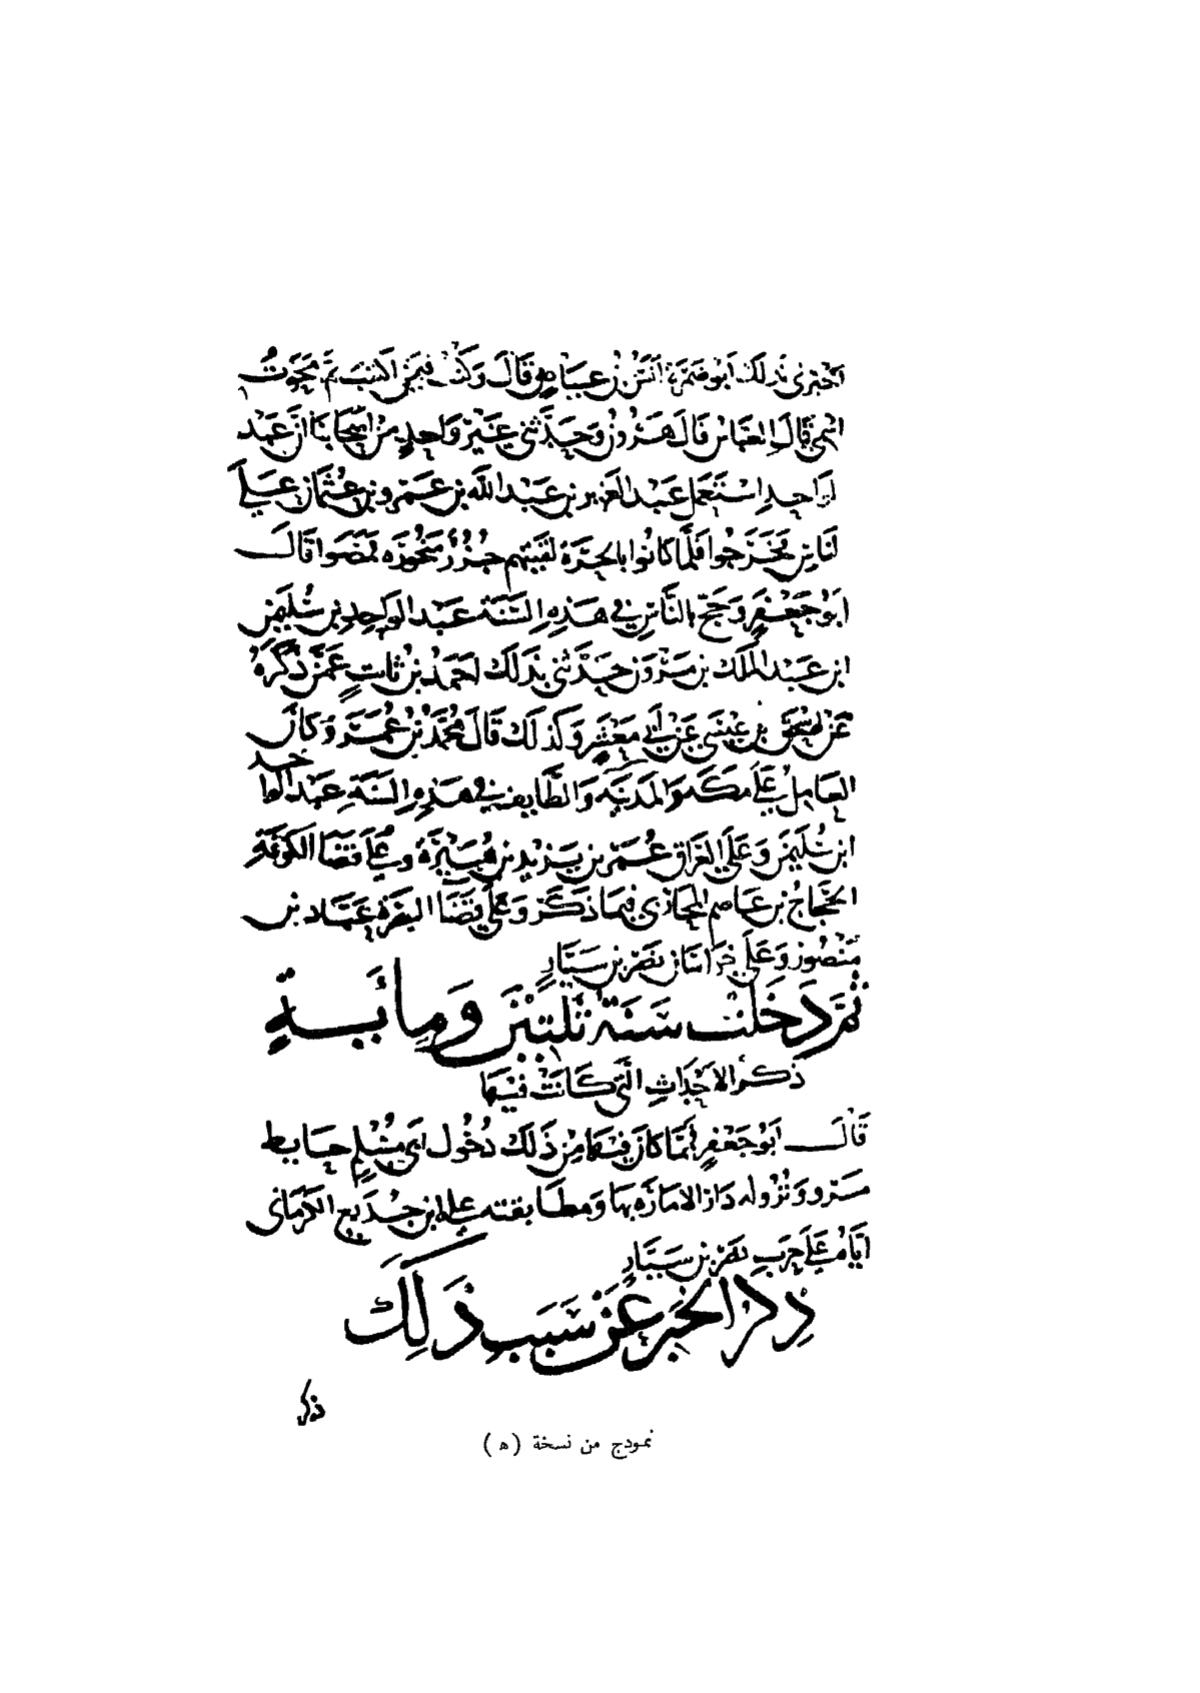 اخبرني بذلك ابو ضمرة انس بن عياض قال وكنت فيمن اكتتب ثم محوت
اسمي قال العباس قال هرون وحدثني غير واحد من اصحابنا ان عبد
الواحد استعمل عبد العزيز بن عبد الله بن عمرو بن عثمان علي
الناس فخرجوا فلما كانوا بالحرة لقيتهم جزر منحورة فمضوا قال
ابو جعفر وحج بالناس في هذه السنة عبد الواحد بن سليمن
ابن عبد الملك بن مرون حدثني بذلك احمد بن ثابت عمن ذكره
عن اسحق بن عيسى عن ابي معشر وكذلك قال محمد بن عمر وكان
العامل علي مكة والمدينة والطايف في هذه السنة عبد الواحد
ابن سليمن وعلي العراق عمر بن يزيد بن هبيرة وعلي قضا الكوفة
الحجاج بن عاصم المحاربي فيما ذكر وعلي قضا البصرة عباد بن
منصور وعلي خراسان نصر بن سيار
ثم دخلت سنة ثلثين ومائية
ذكر الاحداث التي كانت فيها
قال ابو جعفر فمما كان فيها من ذلك دخول ابي مسلم حايط
مرو ونزوله دار الامارة بها ومطابقته علي ابن جديع الكرماني
اياه علي حرب نصر بن سيار
ذكر الخبر عن سبب ذلك
ذكر
نموذج من نسخة (ه)